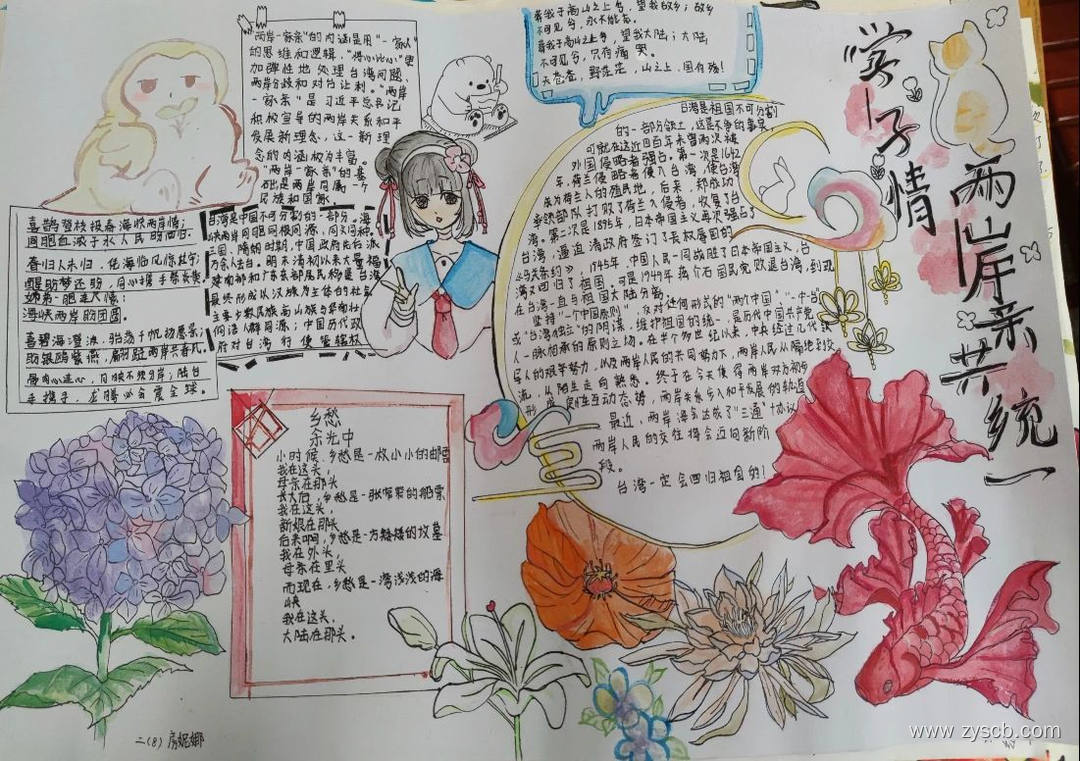 学子情
两岸亲共统一
"两岸一家亲"的内涵是用"一家人"
的思维和逻辑,"将心比心"更
加弹性地处理台湾问题、
两岸分歧和对台让利。"两岸
一家亲"是习近平总书记
积极宣导的两岸关系和平
发展新理念,这一新理
念的内涵极为丰富。
"两岸一家亲"的基
础是两岸同属一个
民族和国家。
葬我于高山之上兮,望我故乡;故乡
不可见兮,永不能忘。
葬我于高山之上兮,望我大陆;大陆
不可见兮,只有痛哭。
天苍苍,野茫茫,山之上,国有殇!
喜鹊登枝报春 海峡两岸情;
同胞血浓于水人民盼
春归人未归,
醒 梦还盼,同心携手
海峡两岸盼团圆。
喜碧海澄波,
两岸共春风。
骨肉心连心,
手携手,龙腾必 震全球。
台湾是中国不可分割的一部分。海
峡两岸同胞同根同源,同文同种。
三国、隋朝时期,中国政府先后派
万余人去台。明末清初以来大量福
建南部和广东东部居民移垦台湾,
最终形成以汉族为主体的社会。
府对台湾行使管辖权
台湾是祖国不可分割
的一部分领土,这是不争的事实,
可就在这近四百年来曾两次被
外国侵略者强占。第一次是1642
年,荷兰侵略者侵入台湾,使台湾
成为荷兰人的殖民地,后来,郑成功
率领部队打败了荷兰入侵者,收复了台
湾。第二次是1895年,日本帝国主义再次强占了
台湾,逼迫清政府签订了丧权辱国的
《马关条约》,1945年,中国人民一同战胜了日本帝国主义,台
湾又回归了祖国。可是1949年蒋介石国民党败退台湾,到现
在台湾一直与祖国大陆分离。
坚持"一个中国原则",反对任何形式的"两个中国""一中一台"
或"台湾独立"的阴谋,维护祖国的统一,是历代中国共产党
人一脉相承的原则立场。在半个多世纪以来,中央经过几代领
军人的艰辛努力,以及两岸人民的共同努力下,两岸人民从隔绝到交
流,从陌生走向熟悉。终于在今天使得两岸双方初步
形成良性互动态势,两岸关系步入和平发展的轨道。
最近,两岸 会达成了"三通"协议,
两岸人民的交往将会迈向新阶
段。
台湾一定会回归祖国的!
乡愁
余光中
小时候,乡愁是一枚小小的邮票
我在这头,
母亲在那头
长大后,乡愁是一张窄窄的船票
我在这头,
新娘在那头
后来啊,乡愁是一方矮矮的坟墓
我在外头,
母亲在里头
而现在,乡愁是一湾浅浅的海
峡
我在这头,
大陆在那头。
二(8) 房妮娜
www.zyscb.com